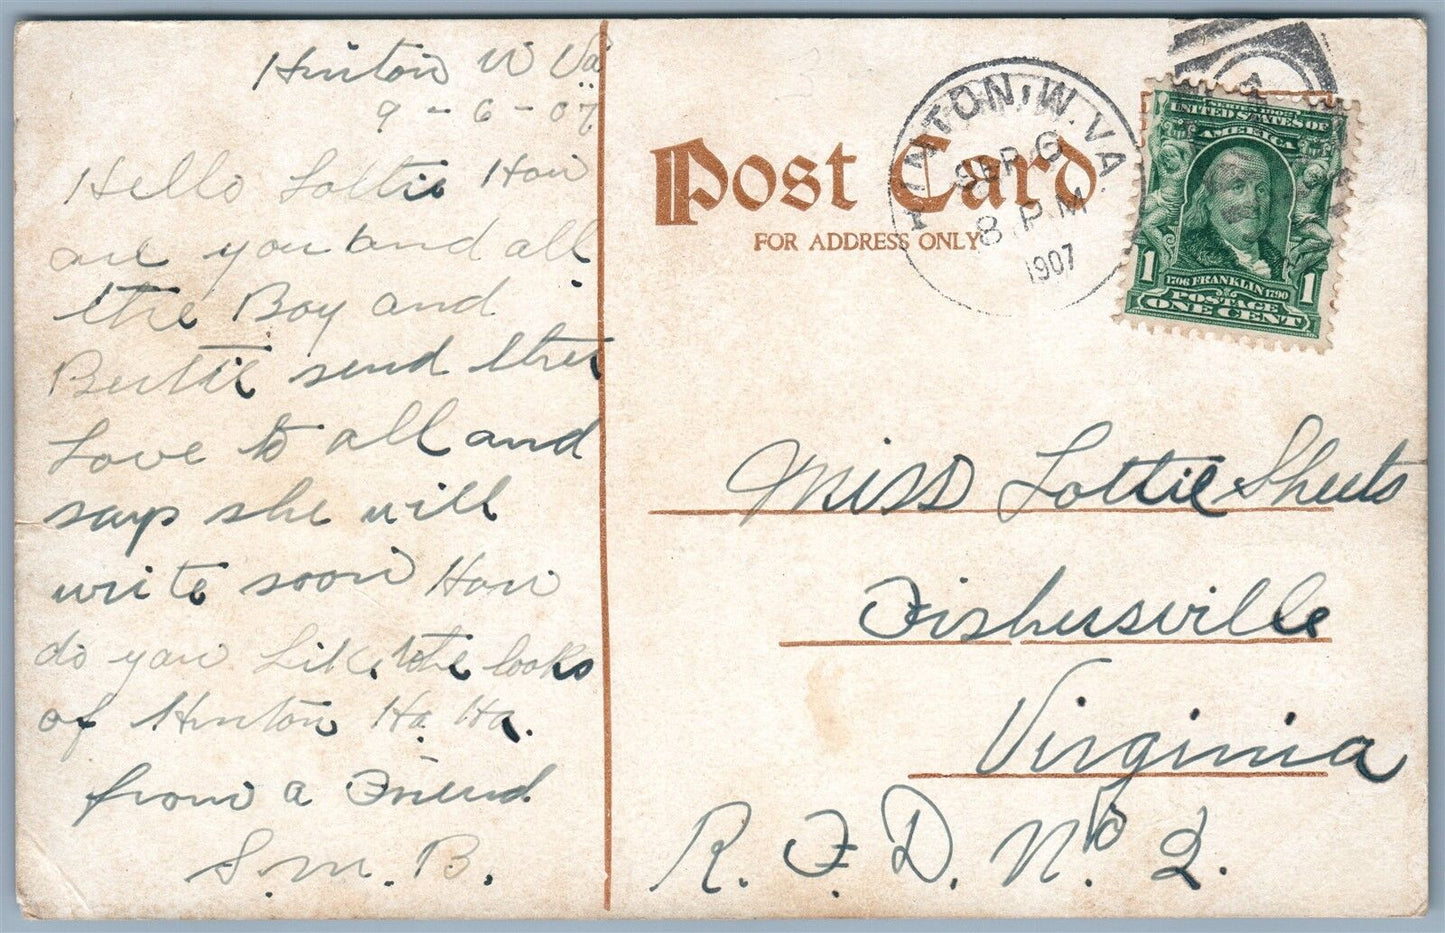 Hinton W Va
9 - 6 - 07
Hello Lottie How
are you and all
the Boy and
Bertie send ther
Love to all and
says she will
write soon How
do you Like the looks
of Hinton Ha. Ha.
from a Friend
S. M. B.
Post Card
FOR ADDRESS ONLY
HINTON, W. VA.
SEP 6
8 P.M
1907
SERIES 1902
UNITED STATES OF
AMERICA
1 1
1706 FRANKLIN 1790
POSTAGE
ONE CENT
Miss Lottie Sheets
Fishersville
Virginia
R. F. D. No 2.